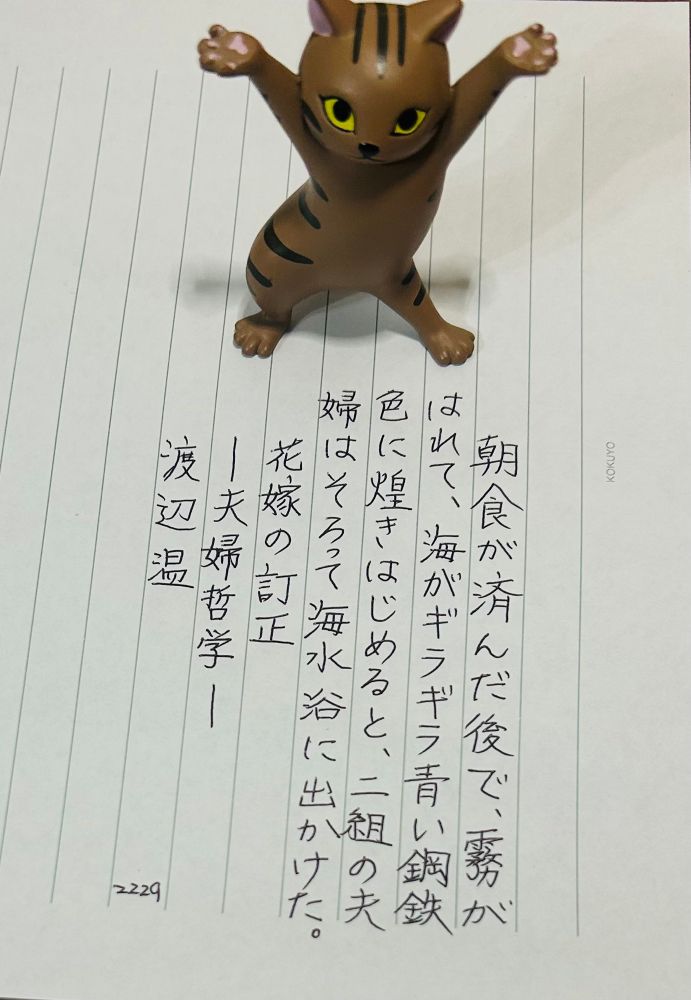 朝食が済んだ後で、霧が
はれて、海がギラギラ青い鋼鉄
色に煌きはじめると、二組の夫
婦はそろって海水浴に出かけた。
花嫁の訂正
ー夫婦哲学ー
渡辺温
2229
KOKUYO